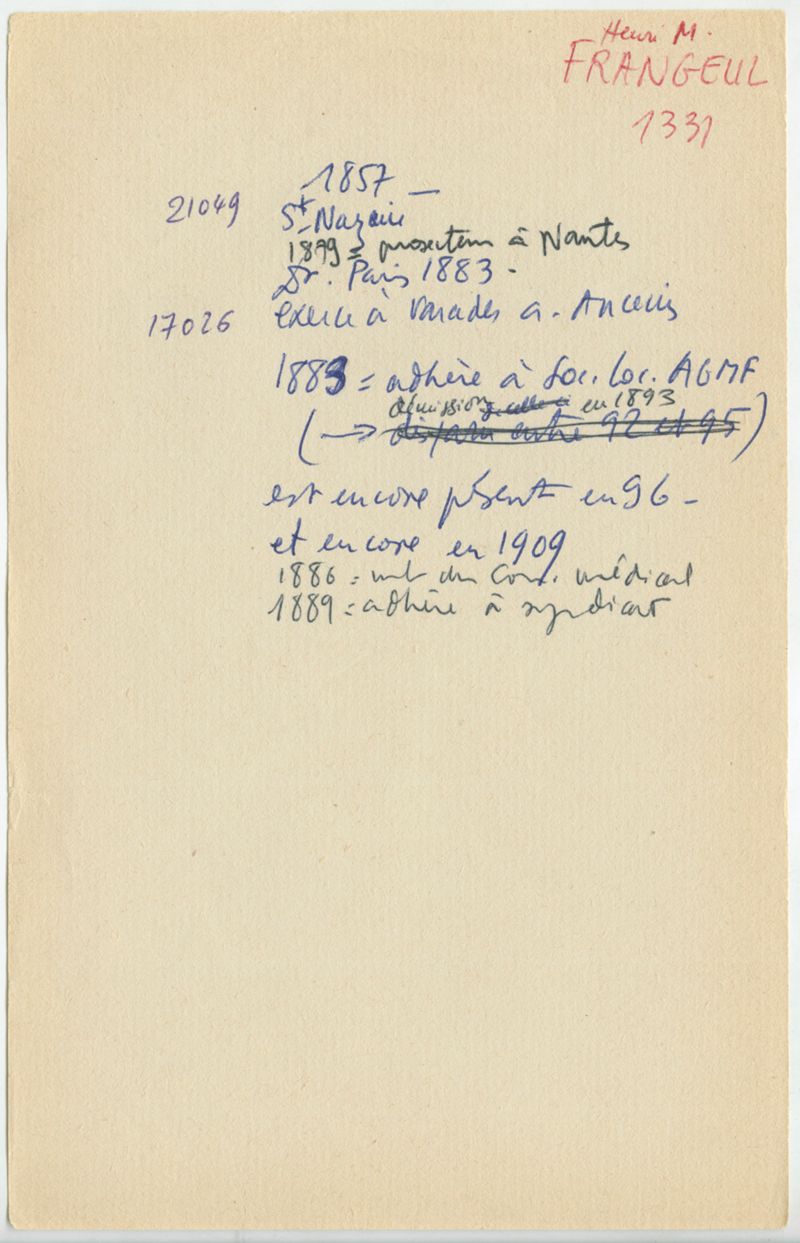 Henri M.
FRANGEUL
1331
1857 -
21049 St-Nazaire
1879 = prosecteur à Nantes
Dr. Paris 1883 -
17026 exerce à Varades a. Ancenis
1883 = adhère à Soc. loc. AGMF
démission en 1893
(→ disparu entre 92 et 95)
est encore présent en 96 -
et encore en 1909
1886 = mb du Conc. médical
1889 = adhère à syndicat